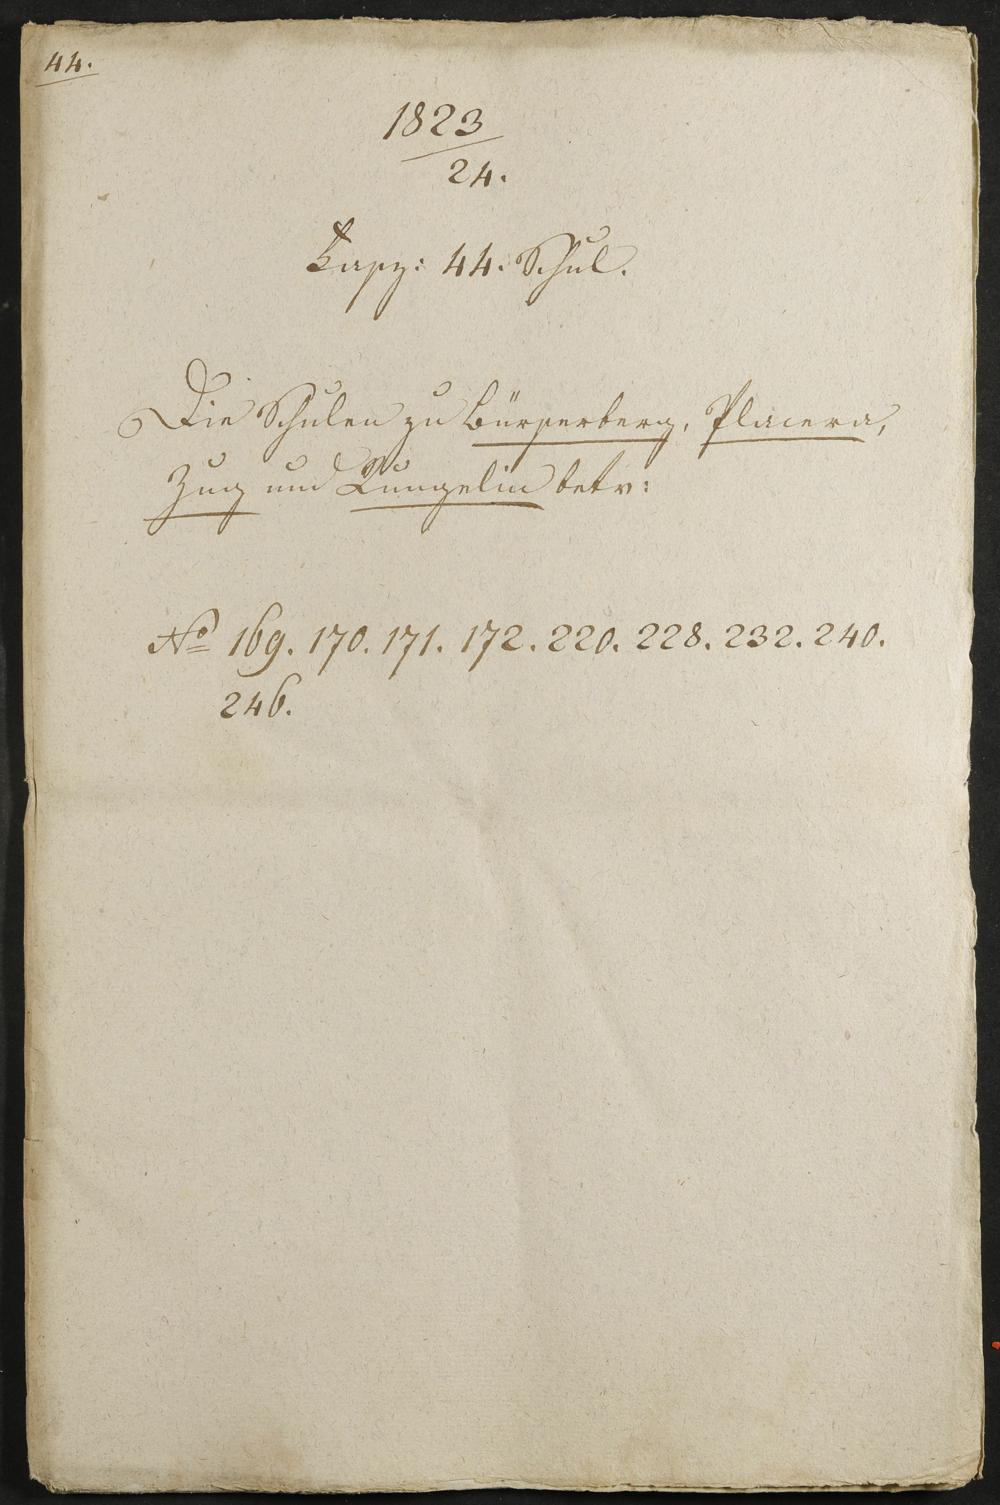 44.
1823
24.
Fasz: 44. Schul.
Die Schulen zu Bürserberg, Plazera,
Zug und Lungelin betr:
No 169. 170. 171. 172. 220. 228. 232. 240.
246.